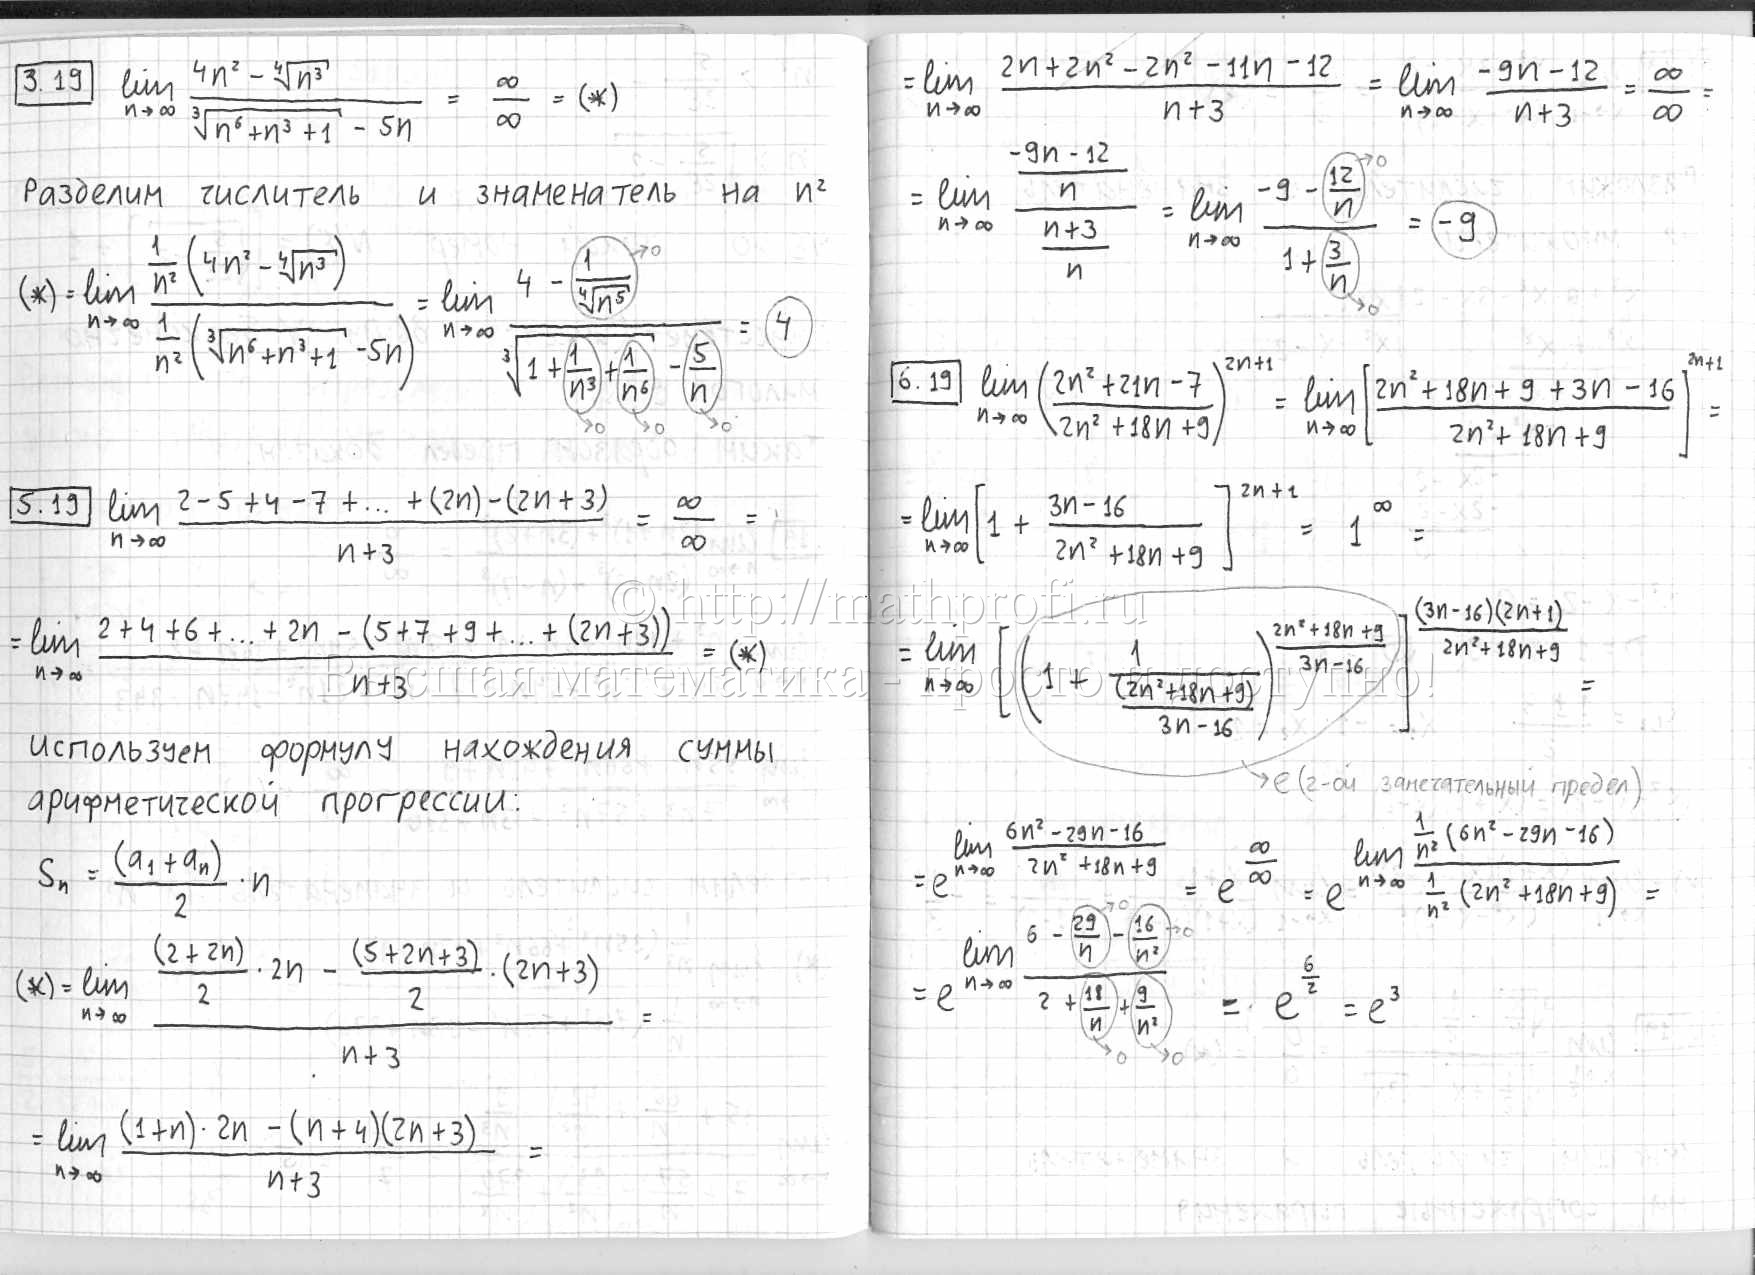 3.19 lim n→∞ (4n² − ⁴√n³) / (³√(n⁶+n³+1) − 5n) = ∞/∞ = (*)
Разделим числитель и знаменатель на n²
(*) = lim n→∞ (1/n² (4n² − ⁴√n³)) / (1/n² (³√(n⁶+n³+1) − 5n)) = lim n→∞ (4 − 1/⁴√n⁵ →0) / (³√(1 + 1/n³ →0 + 1/n⁶ →0) − 5/n →0) = 4
5.19 lim n→∞ (2 − 5 + 4 − 7 + ... + (2n) − (2n+3)) / (n+3) = ∞/∞ =
= lim n→∞ (2+4+6+...+2n − (5+7+9+...+(2n+3))) / (n+3) = (*)
Используем формулу нахождения суммы
арифметической прогрессии:
Sₙ = (a₁+aₙ)/2 · n
(*) = lim n→∞ ((2+2n)/2 · 2n − (5+2n+3)/2 · (2n+3)) / (n+3) =
= lim n→∞ ((1+n)·2n − (n+4)(2n+3)) / (n+3) =
= lim n→∞ (2n+2n²−2n²−11n−12) / (n+3) = lim n→∞ (−9n−12) / (n+3) = ∞/∞ =
= lim n→∞ ((−9n−12)/n) / ((n+3)/n) = lim n→∞ (−9 − 12/n →0) / (1 + 3/n →0) = −9
6.19 lim n→∞ ((2n²+21n−7) / (2n²+18n+9))^(2n+1) = lim n→∞ [(2n²+18n+9+3n−16) / (2n²+18n+9)]^(2n+1) =
= lim n→∞ [1 + (3n−16) / (2n²+18n+9)]^(2n+1) = 1^∞ =
= lim n→∞ [(1 + 1 / ((2n²+18n+9) / (3n−16)))^((2n²+18n+9) / (3n−16))]^((3n−16)(2n+1) / (2n²+18n+9)) =
→ e (2-ой замечательный предел)
= e^(lim n→∞ (6n²−29n−16) / (2n²+18n+9)) = e^(∞/∞) = e^(lim n→∞ (1/n² (6n²−29n−16)) / (1/n² (2n²+18n+9))) =
= e^(lim n→∞ (6 − 29/n →0 − 16/n² →0) / (2 + 18/n →0 + 9/n² →0)) = e^(6/2) = e³
© http://mathprofi.ru
Высшая математика - просто и доступно!